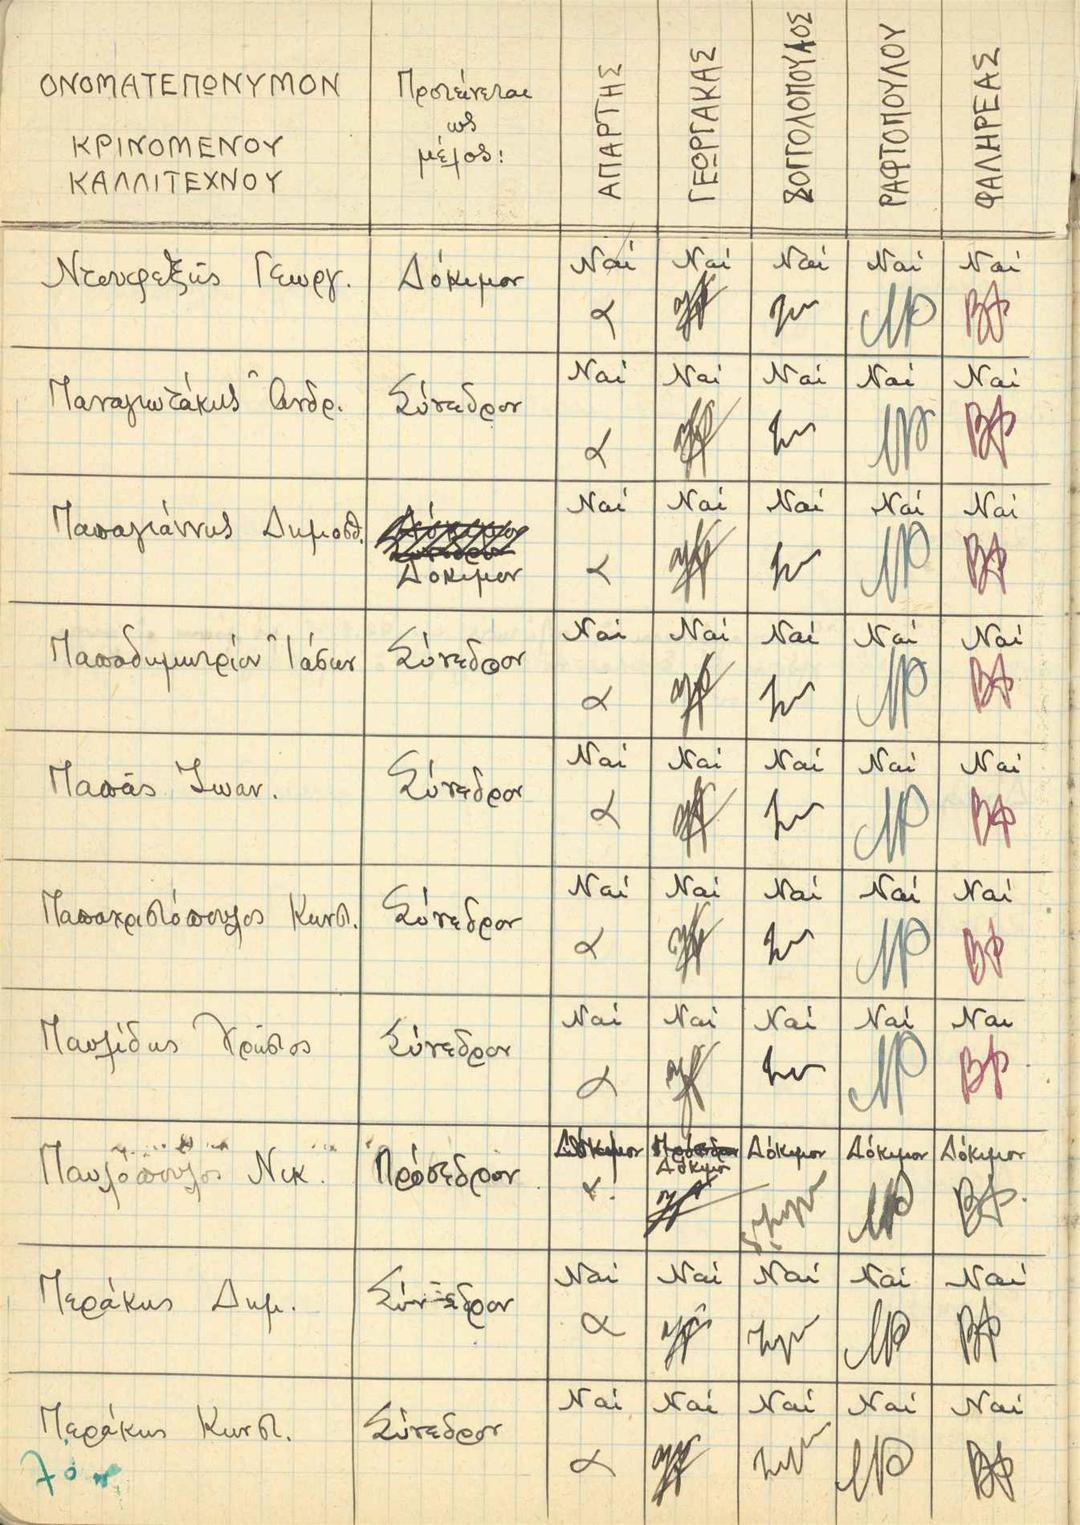 ΟΝΟΜΑΤΕΠΩΝΥΜΟΝ
ΚΡΙΝΟΜΕΝΟΥ
ΚΑΛΛΙΤΕΧΝΟΥ
Προτείνεται
ως
μέλος:
ΑΠΑΡΤΗΣ
ΓΕΩΡΓΑΚΑΣ
ΖΟΓΓΟΛΟΠΟΥΛΟΣ
ΡΑΦΤΟΠΟΥΛΟΥ
ΦΑΛΗΡΕΑΣ
Ντουφεξῆς Γεωργ. Δόκιμον Ναί Ναί Ναί Ναί Ναί
α ΒΦ
Παναγιωτάκης Ἀνδρ. Σύνεδρον Ναί Ναί Ναί Ναί Ναί
α ΒΦ
Παπαγιάννης Δημοσθ. Ναί Ναί Ναί Ναί Ναί
Δόκιμον α ΒΦ
Παπαδημητρίου Ἰάσων Σύνεδρον Ναί Ναί Ναί Ναί Ναί
α ΒΦ
Παπᾶς Ἰωαν. Σύνεδρον Ναί Ναί Ναί Ναί Ναί
α ΒΦ
Παπαχριστόπουλος Κωνστ. Σύνεδρον Ναί Ναί Ναί Ναί Ναί
α ΒΦ
Παυλίδης Χρῆστος Σύνεδρον Ναί Ναί Ναί Ναί Ναι
α ΒΦ
Παυλόπουλος Νικ. Πρόσεδρον Δόκιμον Δόκιμον Δόκιμον Δόκιμον Δόκιμον
α. ΒΦ.
Περάκης Δημ. Σύνεδρον Ναί Ναί Ναί Ναί Ναί
α ΒΦ
Περάκης Κωνστ. Σύνεδρον Ναί Ναί Ναί Ναί Ναί
α ΒΦ